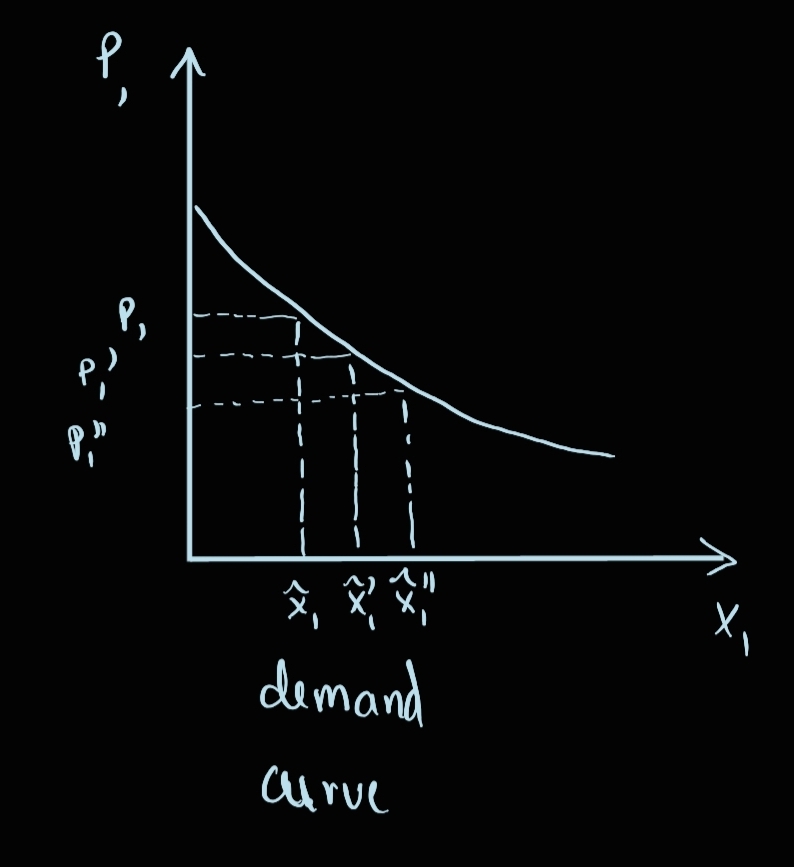 P₁
P₁
P₁'
P₁''
x̂₁ x̂₁' x̂₁''
X₁
demand
curve